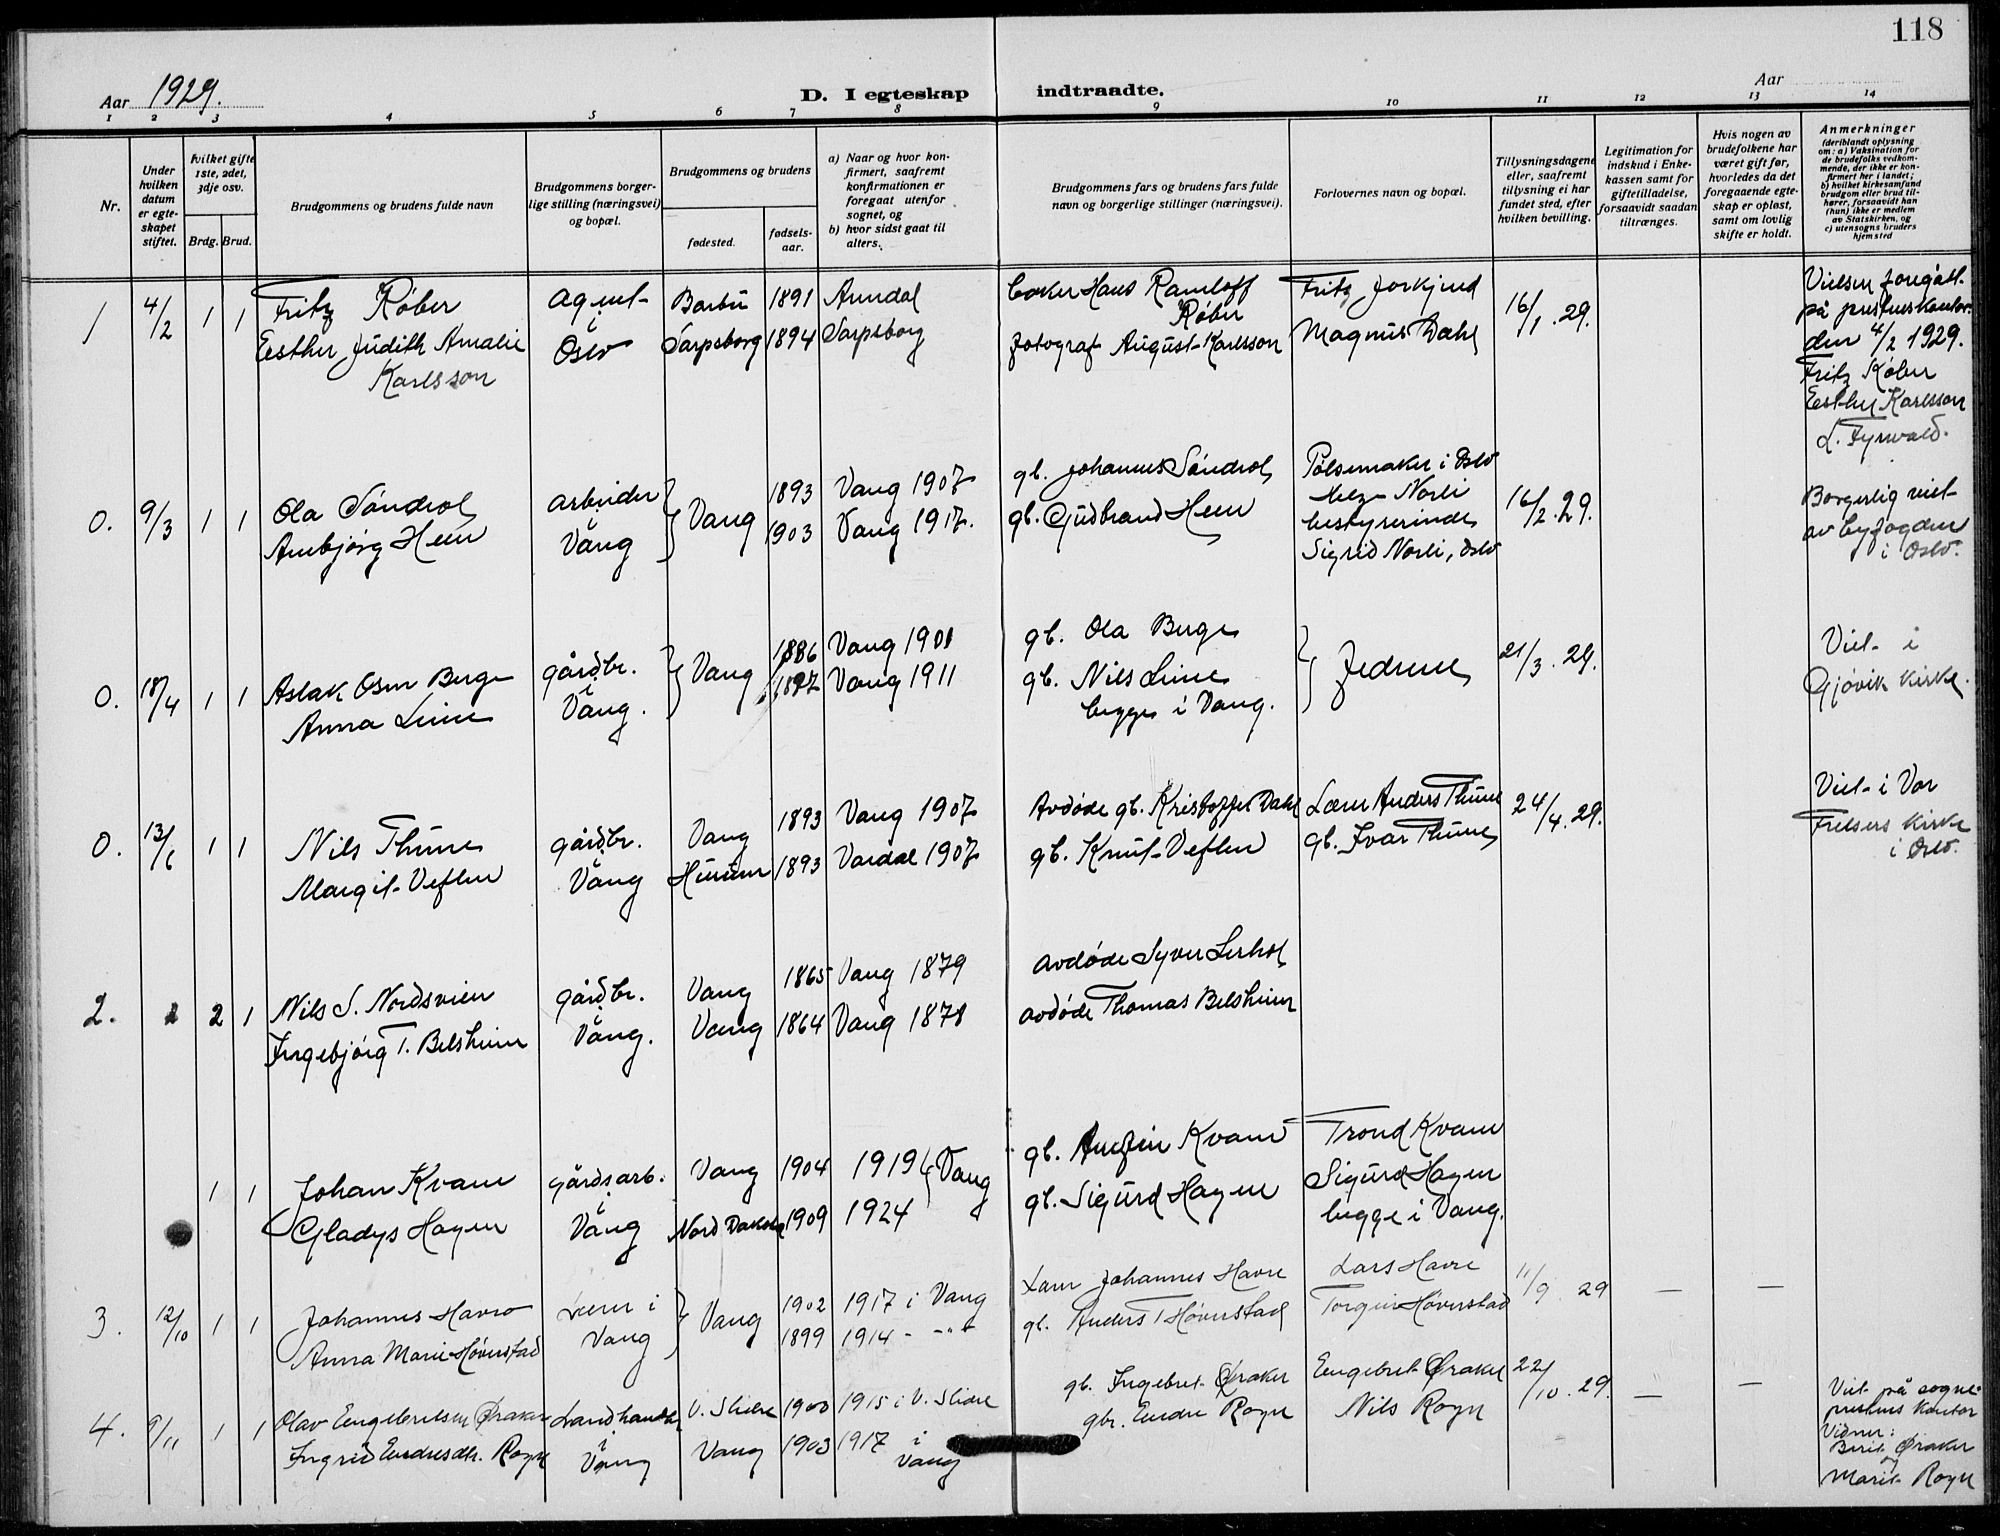 118
Aar 1929.
D. I egteskap indtraadte.
Aar
1 2 3 4 5 6 7 8 9 10 11 12 13 14
Nr.
Under hvilken datum er egteskapet stiftet.
hvilket gifte 1ste, 2det, 3dje osv.
Brdg. Brud.
Brudgommens og brudens fulde navn
Brudgommens borgerlige stilling (næringsvei) og bopæl.
Brudgommens og brudens
fødested.
fødselsaar.
a) Naar og hvor konfirmert, saafremt konfirmationen er foregaat utenfor sognet, og
b) hvor sidst gaat til alters.
Brudgommens fars og brudens fars fulde navn og borgerlige stillinger (næringsvei).
Forlovernes navn og bopæl.
Tillysningsdagene eller, saafremt tillysning ei har fundet sted, efter hvilken bevilling.
Legitimation for indskud i Enkekassen samt for giftetilladelse, forsaavidt saadan tiltrænges.
Hvis nogen av brudefolkene har været gift før, hvorledes da det foregaaende egteskap er opløst, samt om lovlig skifte er holdt.
Anmerkninger
(deriblandt oplysning om: a) Vaksination for de brudefolks vedkommende, der ikke er konfirmert her i landet;
b) hvilket kirkesamfund brudgom eller brud tilhører, forsaavidt han (hun) ikke er medlem av Statskirken, og
c) utensogns bruders hjemsted
1 4/2 1 1 Fritz Røber Agent i Oslo Barbu 1891 Arendal
Esther Judith Amalie Karlsson Sarpsborg 1894 Sarpsborg
Hans Ramloff Røber
fotograf August Karlsson
Fritz
Magnus Dahl
16/1. 29.
Vielsen foregått
på prestens kontor
den 4/2 1929.
Fritz Røber
Esther Karlsson
0. 9/3 1 1 Ola Søndrol arbeider Vang Vang 1893 Vang 1907
Annbjørg Heen 1903 Vang 1917.
gb. Johannes Søndrol
gb. Gudbrand Heen
Pølsemaker i Oslo
Norli
bestyrerinde
Sigrid Norli, Oslo
16/2. 29.
Borgerlig viet
av byfogden
i Oslo.
0. 18/4 1 1 Aslak Osen Berge gårdbr. i Vang. Vang 1886 Vang 1901
Anna Leine 1897 Vang 1911
gb. Ola Berge
gb. Nils Leine
begge i Vang.
Fedrene
21/3. 29.
Viet i
Gjøvik kirke.
0. 13/6 1 1 Nils Thune gårdbr. Vang Vang 1893 Vang 1907
Margit Veflen Hurum 1893 Vardal 1907
Avdøde gb. Kristoffer Dahl
gb. Knut Veflen
Lærer Anders Thune
gb. Ivar Thune
24/4. 29.
Viet i Vor
Frelsers kirke
i Oslo.
2. 2 1 Nils S. Nordsveen gårdbr. i Vang. Vang 1865 Vang 1879
Ingebjørg T. Belsheim Vang 1864 Vang 1878
avdøde Syver Lerhol
avdøde Thomas Belsheim
1 1 Johan Kvam gårdsarb. i Vang Vang 1904 1919 Vang
Gladys Hagen Nord Dakota 1909 1924
gb. Andfin Kvam
gb. Sigurd Hagen
Trond Kvam
Sigurd Hagen
begge i Vang.
3. 12/10 1 1 Johannes Havro Lærer i Vang Vang 1902 1917 i Vang
Anna Marie Høverstad 1899 1914 - -"-
Lærer Johannes Havre
gb. Anders T Høverstad
Lars Havre
Torgeir Høverstad
11/9 29 — —
4. 9/11 1 1 Olav Engebretsen Øraker Landhandler i Vang V. Slidre 1900 1915 i V. Slidre
Ingrid Endresdtr. Rogn Vang 1903 1917 i Vang
gb. Ingebret Øraker
gbr. Endre Rogn
Engebret Øraker
Nils Rogn
22/10. 29. — —
Viet på sogneprestens kontor
Vidner:
Berit Øraker
og
Marit Rogn